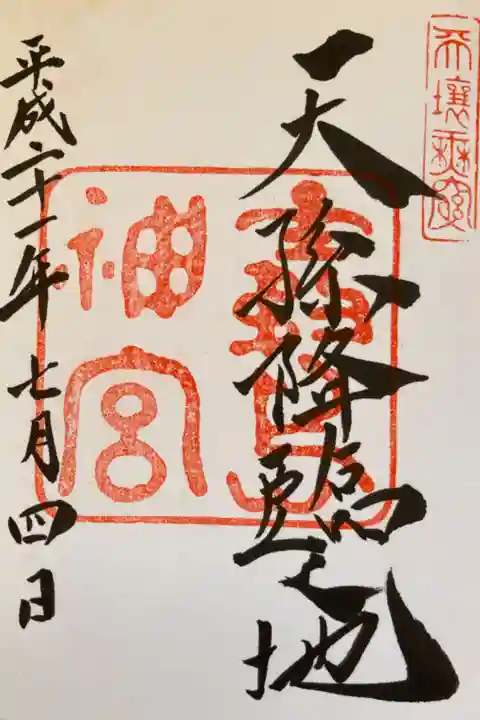 天壌無窮
天孫降臨之地
神宮
平成二十一年七月四日